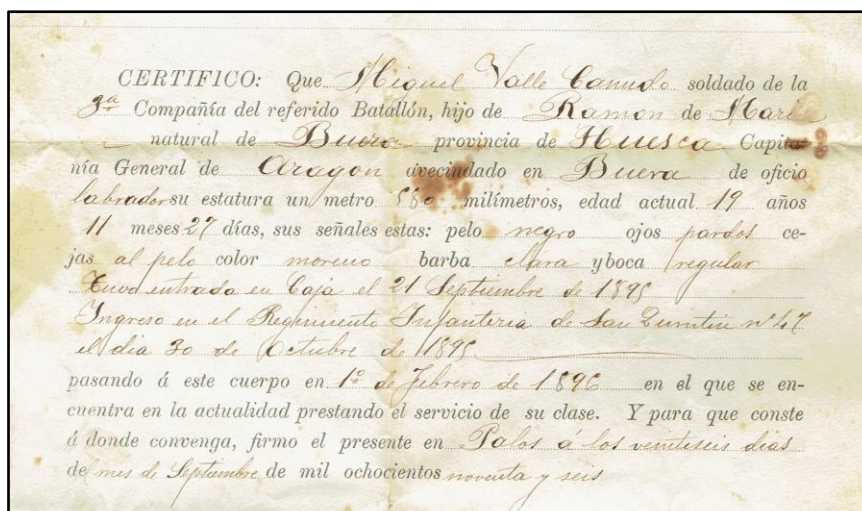 CERTIFICO: Que Miguel Valle Canudo soldado de la
3ª Compañía del referido Batallón, hijo de Ramon de Maria
natural de Buera provincia de Huesca Capita-
nía General de Aragon avecindado en Buera de oficio
labrador su estatura un metro 580 milímetros, edad actual 19 años
11 meses 27 días, sus señales estas: pelo negro ojos pardos ce-
jas al pelo color moreno barba clara y boca regular
Tuvo entrada en Caja el 21 Septiembre de 1895
Ingreso en el Regimiento Infanteria de San Quintin nº 47
el dia 30 de Octubre de 1895
pasando á este cuerpo en 1º de febrero de 1896 en el que se en-
cuentra en la actualidad prestando el servicio de su clase. Y para que conste
á donde convenga, firmo el presente en Palos á los veintiseis dias
de mes de Septiembre de mil ochocientos noventa y seis